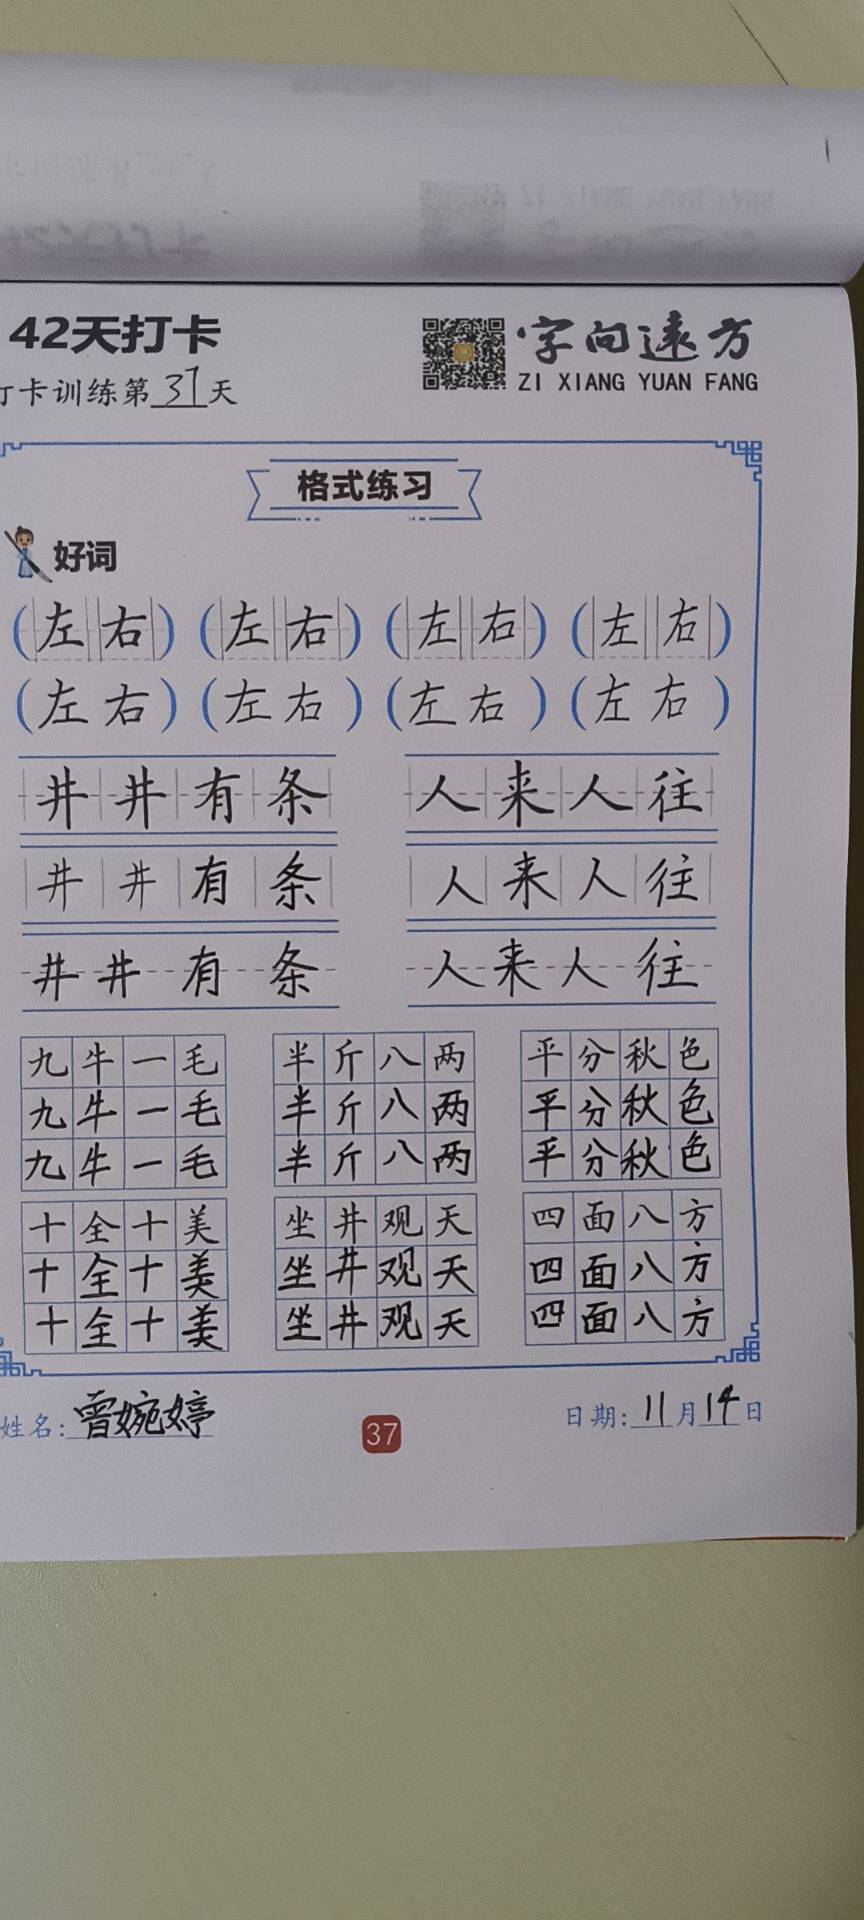 42天打卡
字向远方
打卡训练第37天
ZI XIANG YUAN FANG
格式练习
好词
(左右) (左右) (左右) (左右)
(左右) (左右) (左右) (左右)
井井有条 人来人往
井井有条 人来人往
井井有条 人来人往
九牛一毛 半斤八两 平分秋色
九牛一毛 半斤八两 平分秋色
九牛一毛 半斤八两 平分秋色
十全十美 坐井观天 四面八方
十全十美 坐井观天 四面八方
十全十美 坐井观天 四面八方
姓名:曾婉婷 37 日期:11月14日